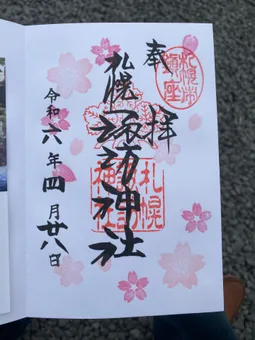 奉拝
札幌市鎮座
札幌諏訪神社
札幌諏訪神社
令和六年四月廿八日